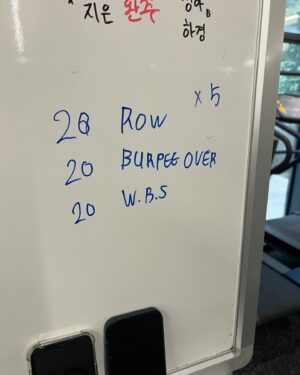 지은 완주
하경
x 5
20 ROW
20 BURPEE OVER
20 W.B.S